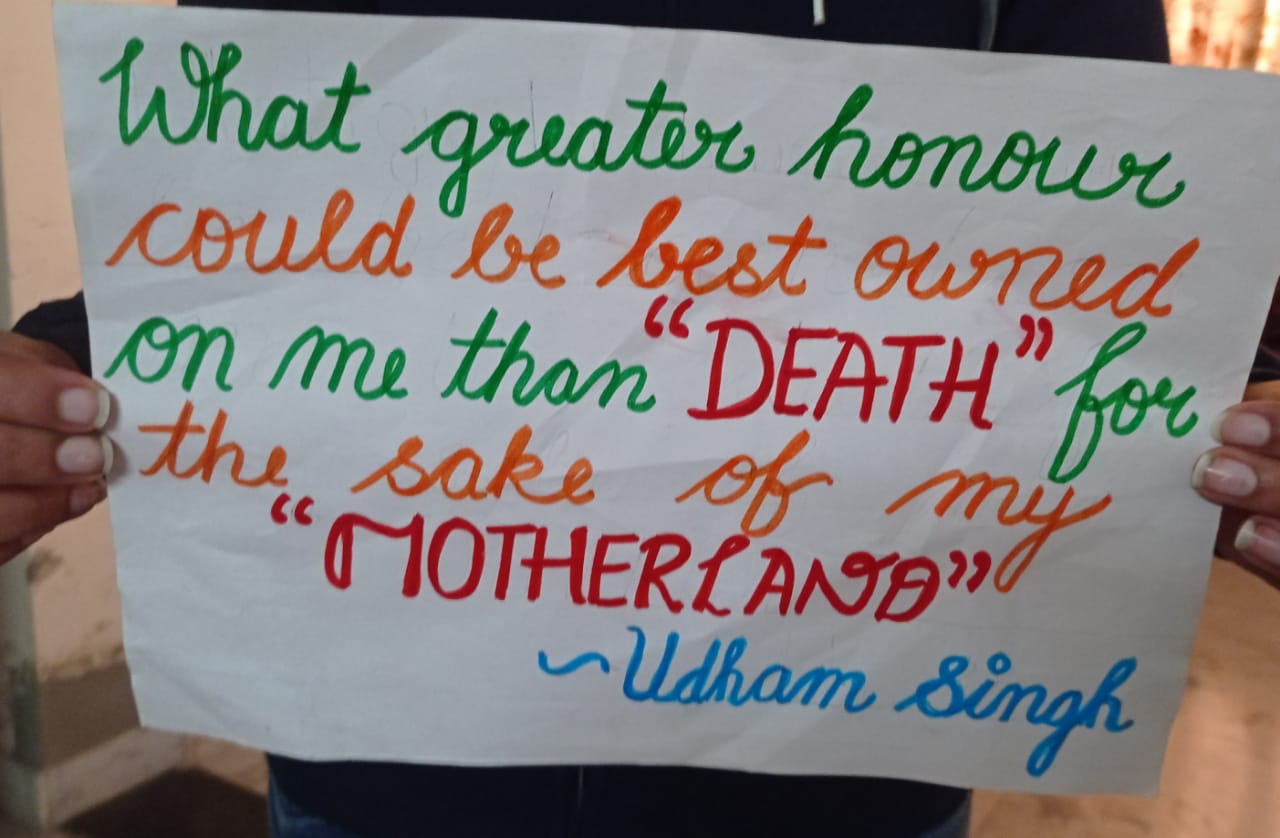 What greater honour
could be best owned
on me than "DEATH" for
the sake of my
"MOTHERLAND"
~Udham Singh